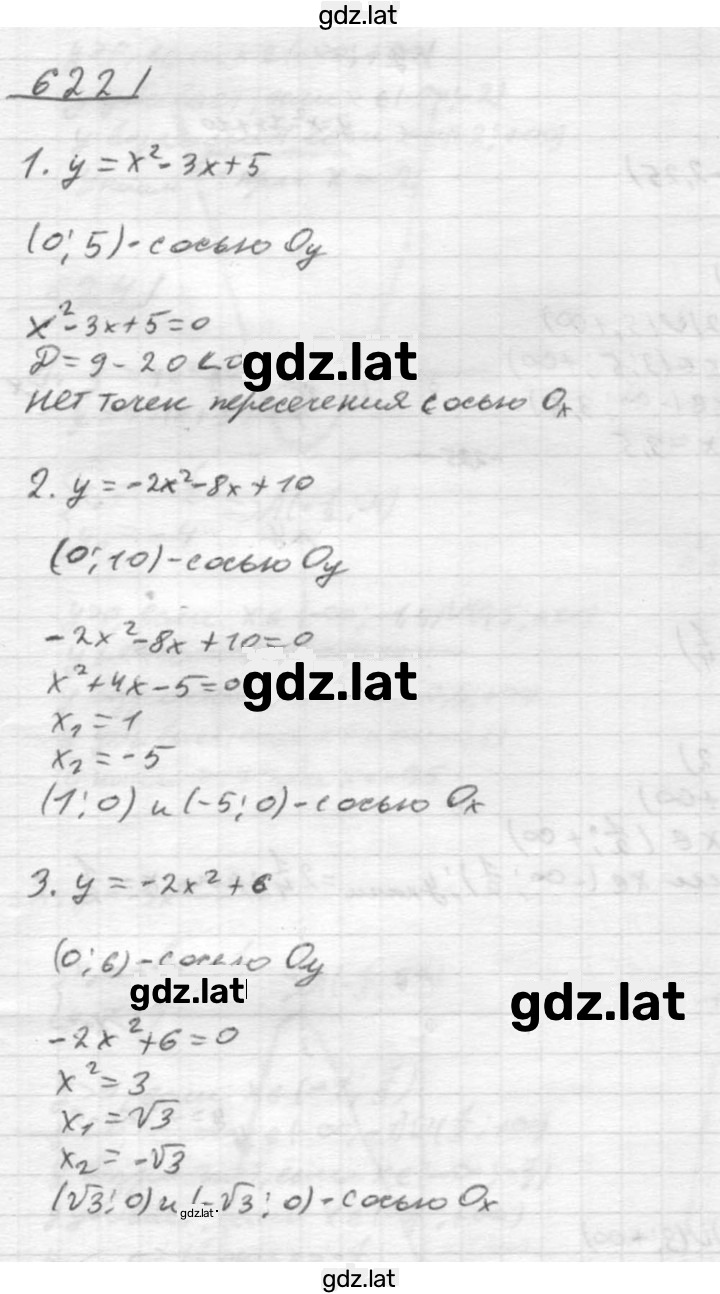 gdz.lat
622
1. y = x² - 3x + 5
(0; 5) - с осью Oy
x² - 3x + 5 = 0
D = 9 - 20 < 0
gdz.lat
нет точек пересечения с осью Ox
2. y = -2x² - 8x + 10
(0; 10) - с осью Oy
-2x² - 8x + 10 = 0
x² + 4x - 5 = 0
gdz.lat
x₁ = 1
x₂ = -5
(1; 0) и (-5; 0) - с осью Ox
3. y = -2x² + 6
(0; 6) - с осью Oy
gdz.lat
gdz.lat
-2x² + 6 = 0
x² = 3
x₁ = √3
x₂ = -√3
(√3; 0) и (-√3; 0) - с осью Ox
gdz.lat
gdz.lat